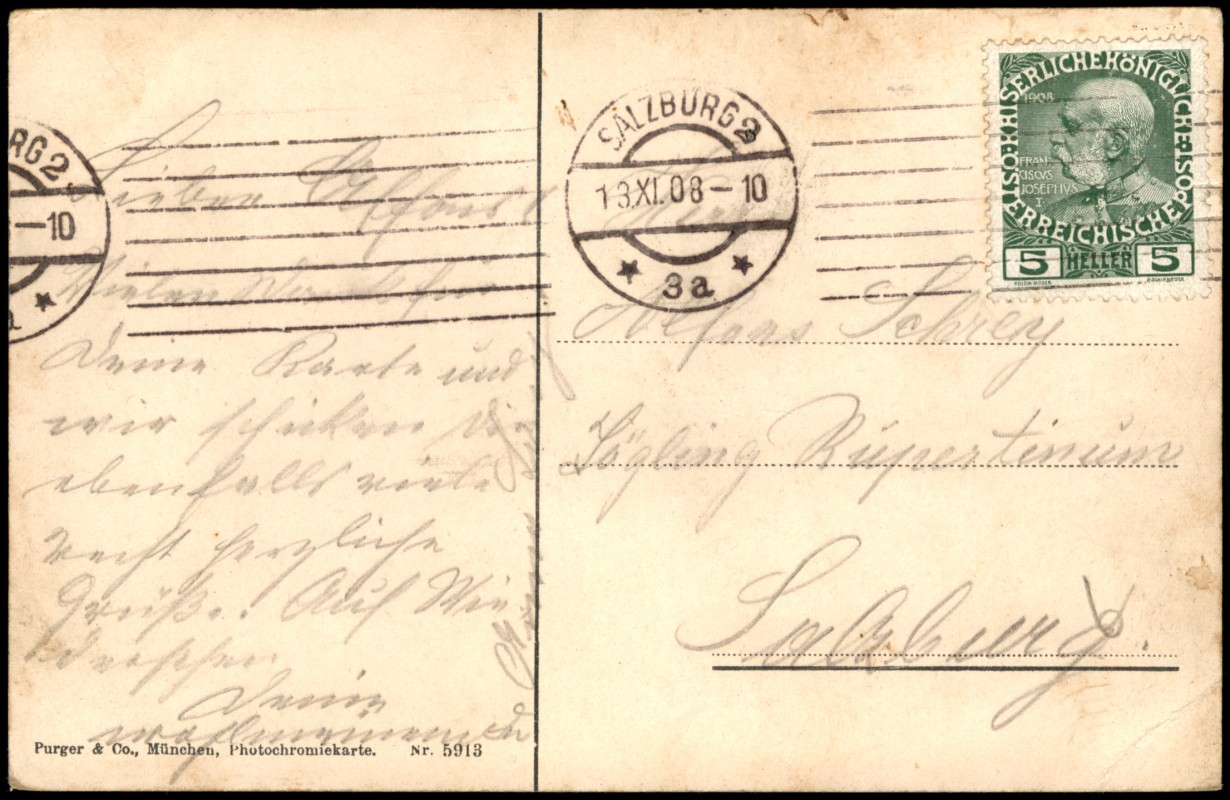 RG 2
- 10
a
Lieber Alfons!
Vielen Dank für
Deine Karte und
wir schicken Dir
ebenfalls viele
recht herzliche
Grüße. Auf Wie
dersehen
Deine
Purger & Co., München, Photochromiekarte. Nr. 5913
SALZBURG 2
13.XI.08-10
3a
KAISERLICHE KÖNIGLICHE ÖSTERREICHISCHE POST
1908
FRAN
CISCVS
JOSEPHVS
I
5 HELLER 5
Herrn
Alfons Schrey
Zögling Rupertinum
Salzburg.